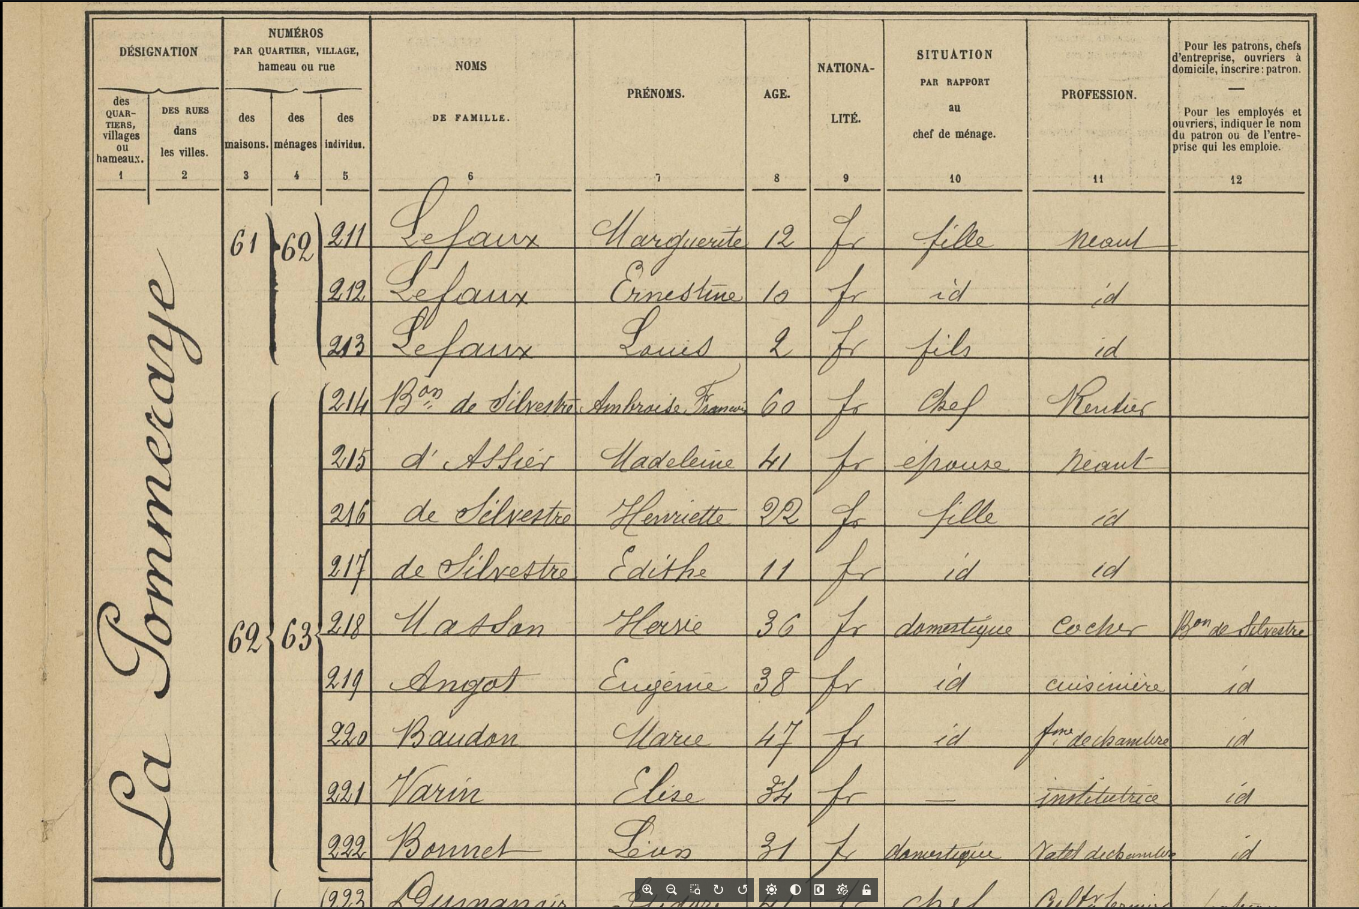 DÉSIGNATION
NUMÉROS
PAR QUARTIER, VILLAGE,
hameau ou rue
NOMS
DE FAMILLE.
PRÉNOMS.
AGE.
NATIONA-
LITÉ.
SITUATION
PAR RAPPORT
au
chef de ménage.
PROFESSION.
Pour les patrons, chefs
d'entreprise, ouvriers à
domicile, inscrire : patron.
Pour les employés et
ouvriers, indiquer le nom
du patron ou de l'entre-
prise qui les emploie.
des
QUAR-
TIERS,
villages
ou
hameaux.
DES RUES
dans
les villes.
des
maisons.
des
ménages
des
individus.
1 2 3 4 5 6 7 8 9 10 11 12
La Pommeraye
61 62 211 Lefaux Marguerite 12 fr fille neant
212 Lefaux Ernestine 10 fr id id
213 Lefaux Louis 2 fr fils id
214 Bon de Silvestre Ambroise Francois 60 fr Chef Rentier
215 d'Assier Madeleine 41 fr épouse neant
216 de Silvestre Henriette 22 fr fille id
217 de Silvestre Edithe 11 fr id id
62 63 218 Masson Hervé 36 fr domestique cocher Bon de Silvestre
219 Angot Eugénie 38 fr id cuisinière id
220 Baudon Marie 47 fr id fme de chambre id
221 Varin Elise 34 fr — institutrice id
222 Bonnet Léon 31 fr domestique Valet de chambre id
223 chef